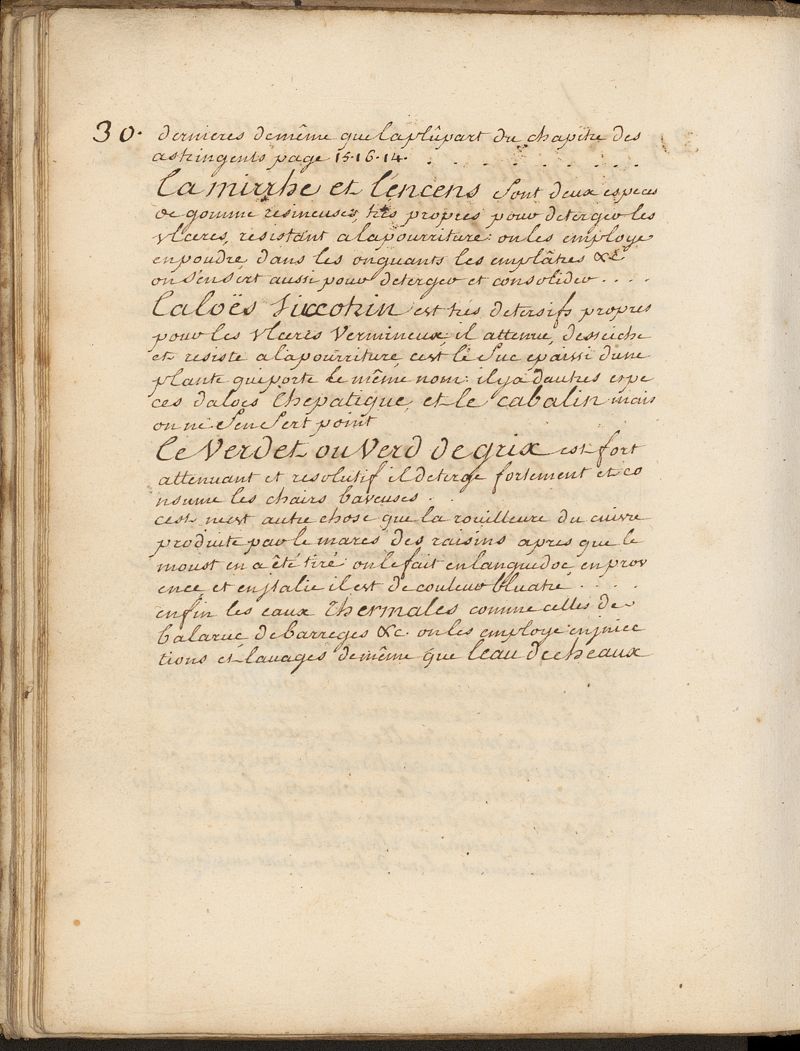 30. dernieres demême que la plûpart du chapitre des
astringents page 15.16.14. . . . . . . . . .
la mirrhe et l'encens sont deux especes
de gomme resineuses, trés propres pour deterger les
vlceres, resistant a la pourriture on les employe
en poudre dans les onguants les emplâtres &c
on s'en sert aussi pour deterger et consolider . . . .
l'aloës siccotrin est trés detersifs propres
pour les vlceres vermineux, il attenue, desseiche
et resiste a la pourriture c'est le suc epaissi d'une
plante qui porte le même nom il y a d'autres espe
ces d'aloes l'hepatique et le cabalin mais
on ne s'en sert point
le verdet ou verd de grix est fort
attenuant et resolutif il deterge fortement et co
nsume les chairs baveuses . .
cest n'est autre chose que la rouilleure du cuivre
produite par le marcs des raisins apres que le
moust en a été tiré on le fait en languedoc en prov
ence et en jtalie il est de couleur bluatre . . . .
enfin les eaux thermales comme celles de
balaruc de barreges &c. on les employe en jniec
tions et lavages demême que l'eau de cheaux